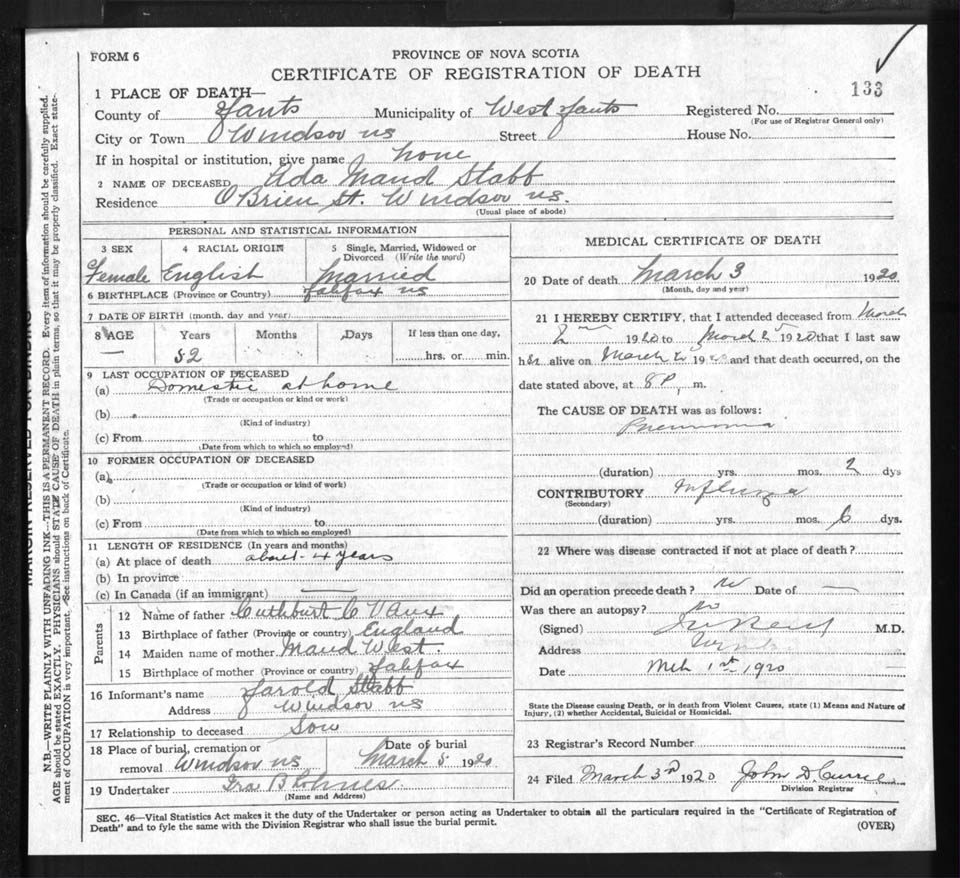 FORM 6
PROVINCE OF NOVA SCOTIA
CERTIFICATE OF REGISTRATION OF DEATH
133
1 PLACE OF DEATH—
County of Hants Municipality of West Hants Registered No.
(For use of Registrar General only)
City or Town Windsor NS Street House No.
If in hospital or institution, give name none
2 NAME OF DECEASED Ada Maud Stabb
Residence O'Brien St. Windsor NS.
(Usual place of abode)
PERSONAL AND STATISTICAL INFORMATION
3 SEX 4 RACIAL ORIGIN 5 Single, Married, Widowed or Divorced (Write the word)
Female English Married
6 BIRTHPLACE (Province or Country) Halifax NS
7 DATE OF BIRTH (month, day and year)
8 AGE Years Months Days If less than one day,
— 52 hrs. or min.
9 LAST OCCUPATION OF DECEASED
(a) Domestic at home
(Trade or occupation or kind or work)
(b)
(Kind of industry)
(c) From to
(Date from which to which so employed)
10 FORMER OCCUPATION OF DECEASED
(a)
(Trade or occupation or kind of work)
(b)
(Kind of industry)
(c) From to
(Date from which to which so employed)
11 LENGTH OF RESIDENCE (In years and months)
(a) At place of death about 4 years
(b) In province
(c) In Canada (if an immigrant) —
Parents
12 Name of father Cuthburt C Vaux
13 Birthplace of father (Province or country) England
14 Maiden name of mother Maud West.
15 Birthplace of mother (Province or country) Halifax
16 Informant's name Harold Stabb
Address Windsor NS
17 Relationship to deceased Son
18 Place of burial, cremation or removal Windsor NS Date of burial March 5 1920
19 Undertaker Ira B Lohnes.
(Name and Address)
MEDICAL CERTIFICATE OF DEATH
20 Date of death March 3 1920
(Month, day and year)
21 I HEREBY CERTIFY, that I attended deceased from March
2nd 1920 to March 1920 that I last saw
her alive on March 19 and that death occurred, on the
date stated above, at 8 P, m.
The CAUSE OF DEATH was as follows:
Pneumonia
(duration) yrs. mos. 2 dys
CONTRIBUTORY Influenza
(Secondary)
(duration) yrs. mos. 6 dys.
22 Where was disease contracted if not at place of death?
Did an operation precede death? No Date of —
Was there an autopsy? No
(Signed) M.D.
Address
Date Mch 1st 1920
State the Disease causing Death, or in death from Violent Causes, state (1) Means and Nature of
Injury, (2) whether Accidental, Suicidal or Homicidal.
23 Registrar's Record Number
24 Filed March 3rd 1920 John D. Currie
Division Registrar
SEC. 46—Vital Statistics Act makes it the duty of the Undertaker or person acting as Undertaker to obtain all the particulars required in the "Certificate of Registration of
Death" and to fyle the same with the Division Registrar who shall issue the burial permit.
(OVER)
MARGIN RESERVED FOR BINDING
N.B.—WRITE PLAINLY WITH UNFADING INK—THIS IS A PERMANENT RECORD. Every item of information should be carefully supplied.
AGE should be stated EXACTLY. PHYSICIANS should STATE CAUSE OF DEATH in plain terms, so that it may be properly classified. Exact state-
ment of OCCUPATION is very important. See instructions on back of Certificate.